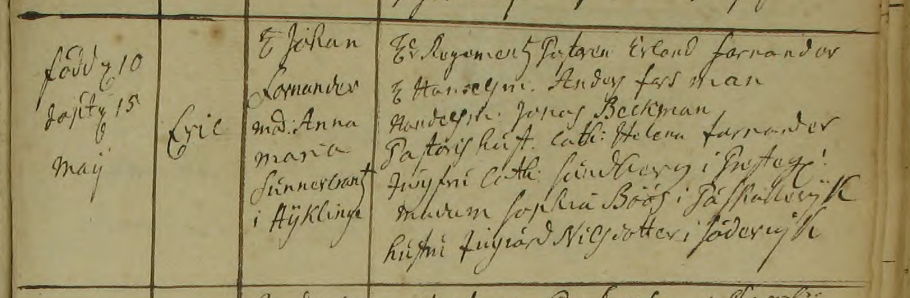 född d 10
döpt d 15
maij
Eric
H Johan
Fornander
md: Anna
maria
Sunnerbrant
i Hyklinge
H Regements Pastoren Erland fornander
H Handelsm. Anders forsman
Handelsm. Jonas Beckman
Pastors hust. Cath: Helena fornander
Jungfru Cath: Sundberg i Presteg:
madam Sophia Böös i Påskallevijk
hustru Ingiärd Nilsdotter i Södervijk